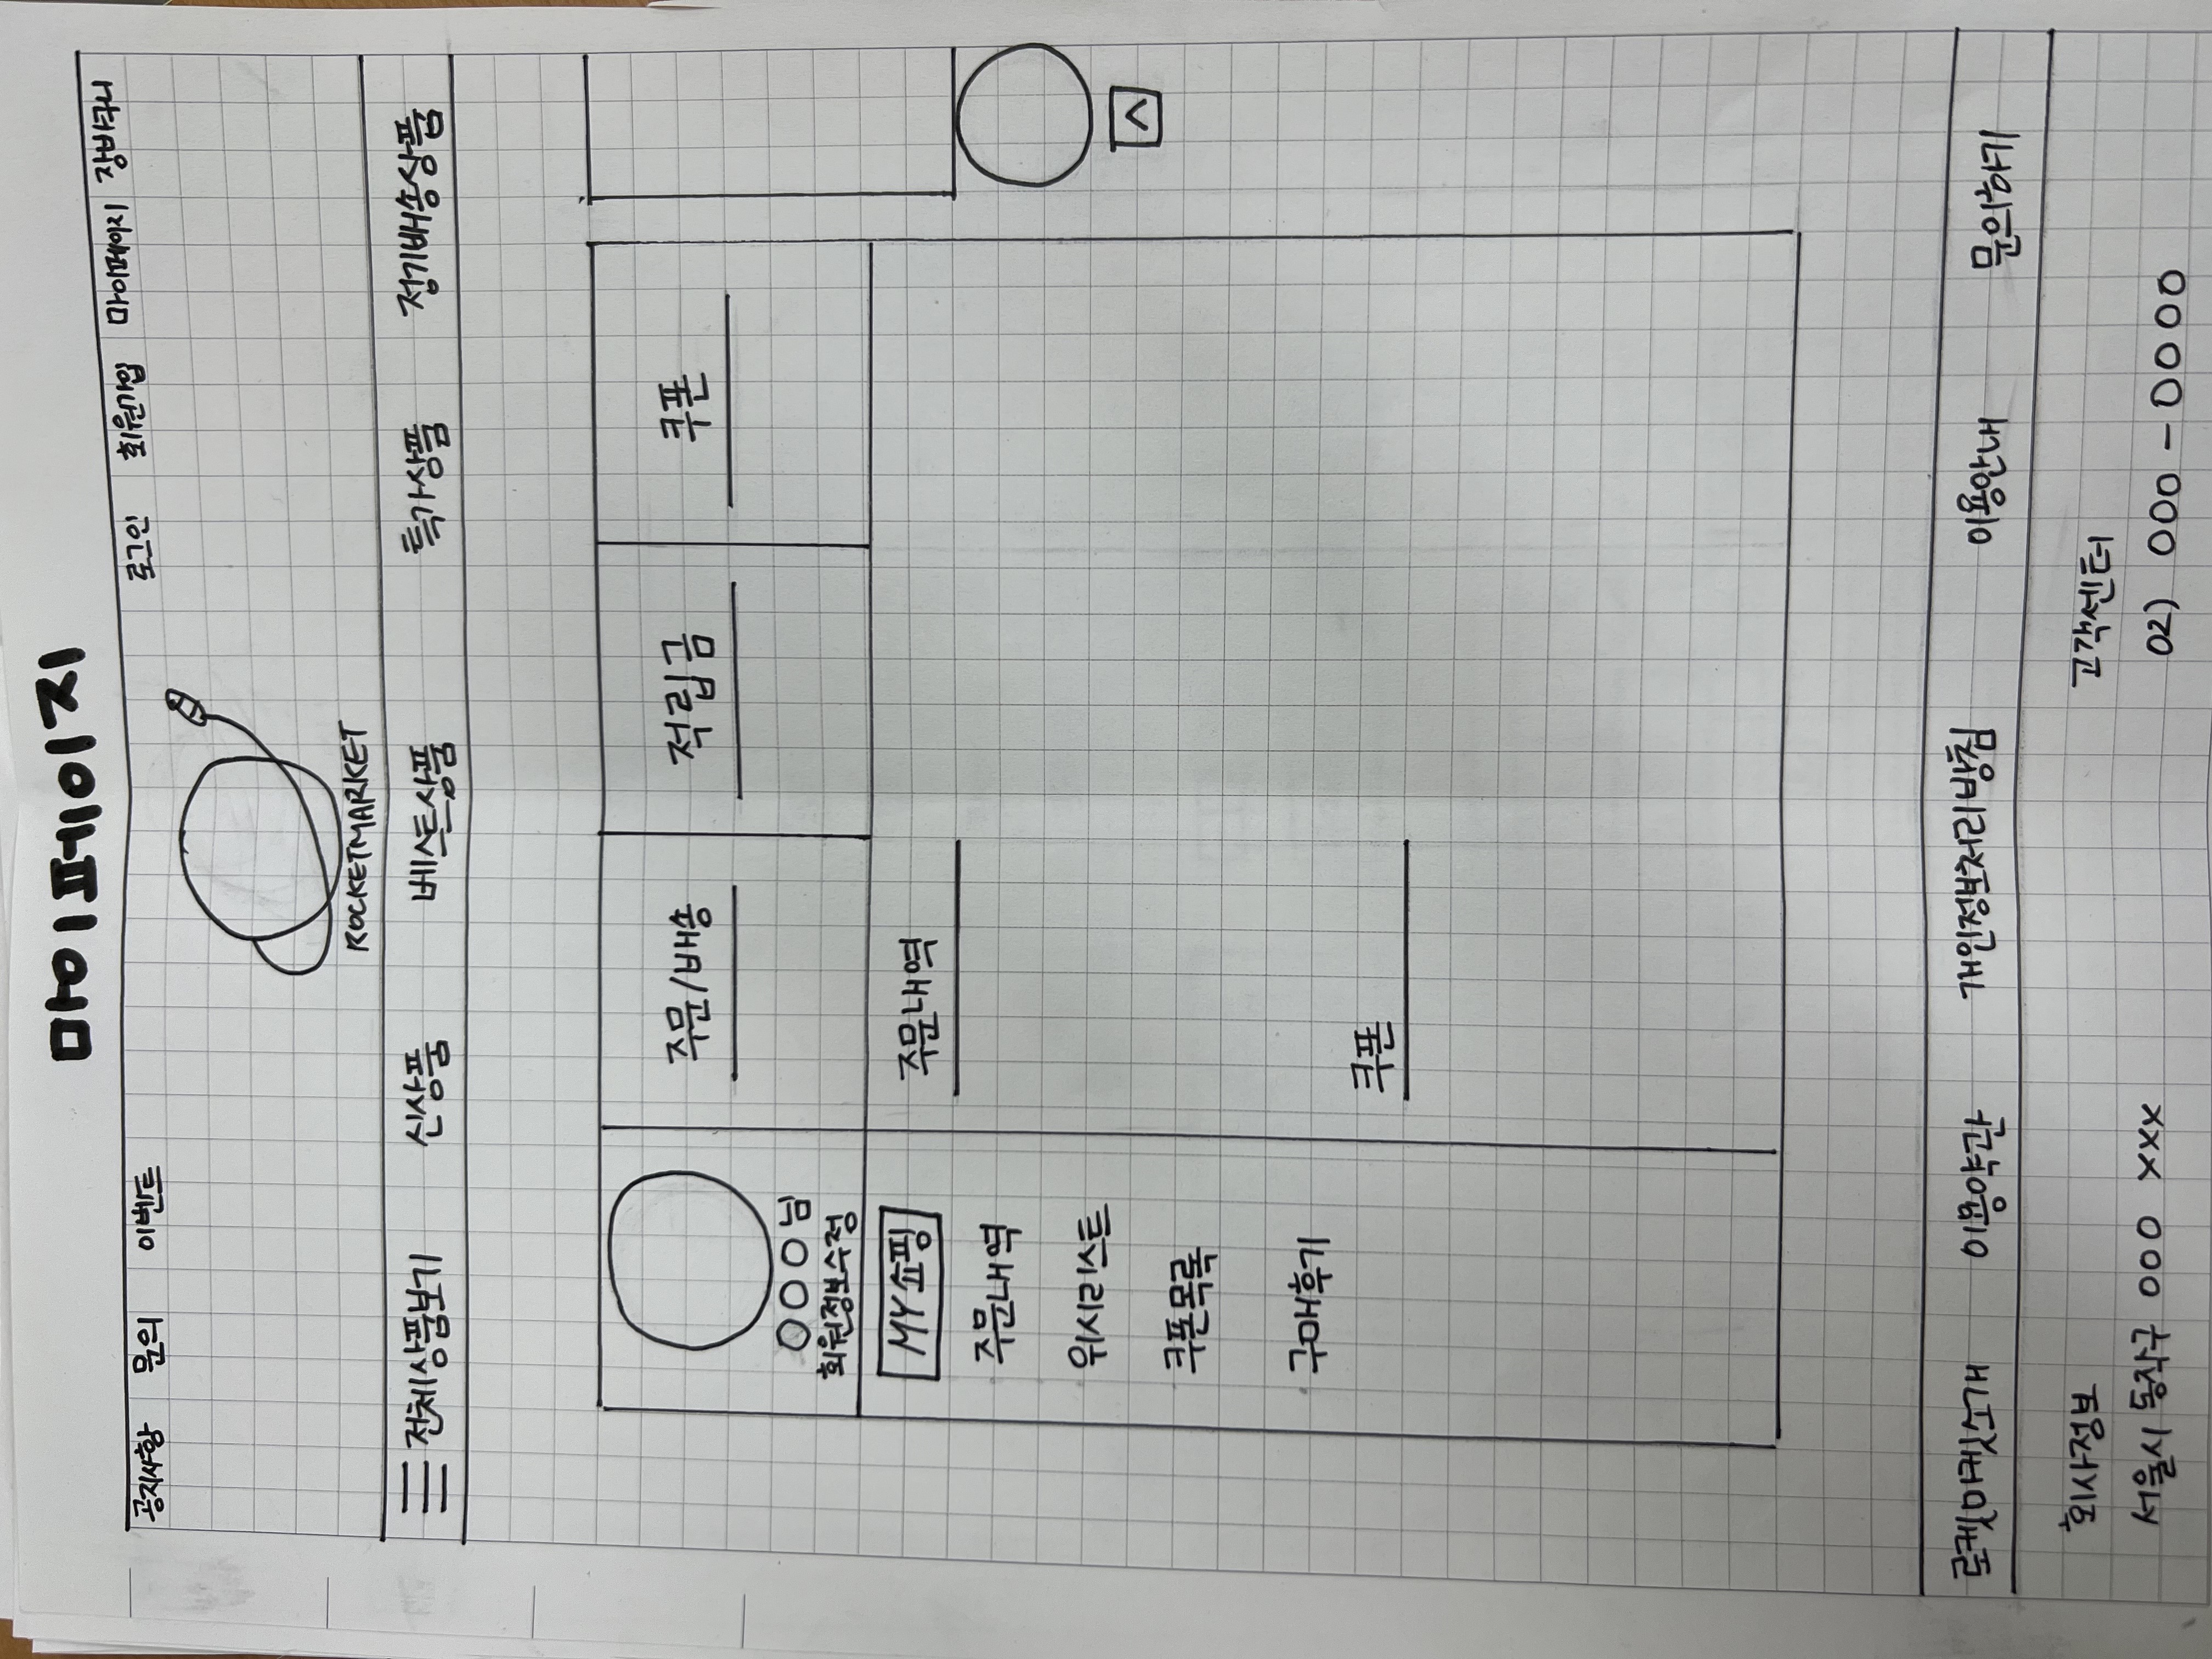 마이페이지
공지사항 문의 이벤트 로그인 회원가입 마이페이지 장바구니
ROCKETMARKET
전체상품보기 신상품 베스트상품 특가상품 정기배송상품
주문/배송 적립금 쿠폰
OOO님
회원정보수정
MY쇼핑
주문내역
위시리스트
쿠폰목록
구매후기
주문내역
쿠폰
로켓마켓소개 이용약관 개인정보처리방침 이용안내 문의하기
회사정보
서울시 동작구 OOO XXX
고객센터
02) OOO-OOOO